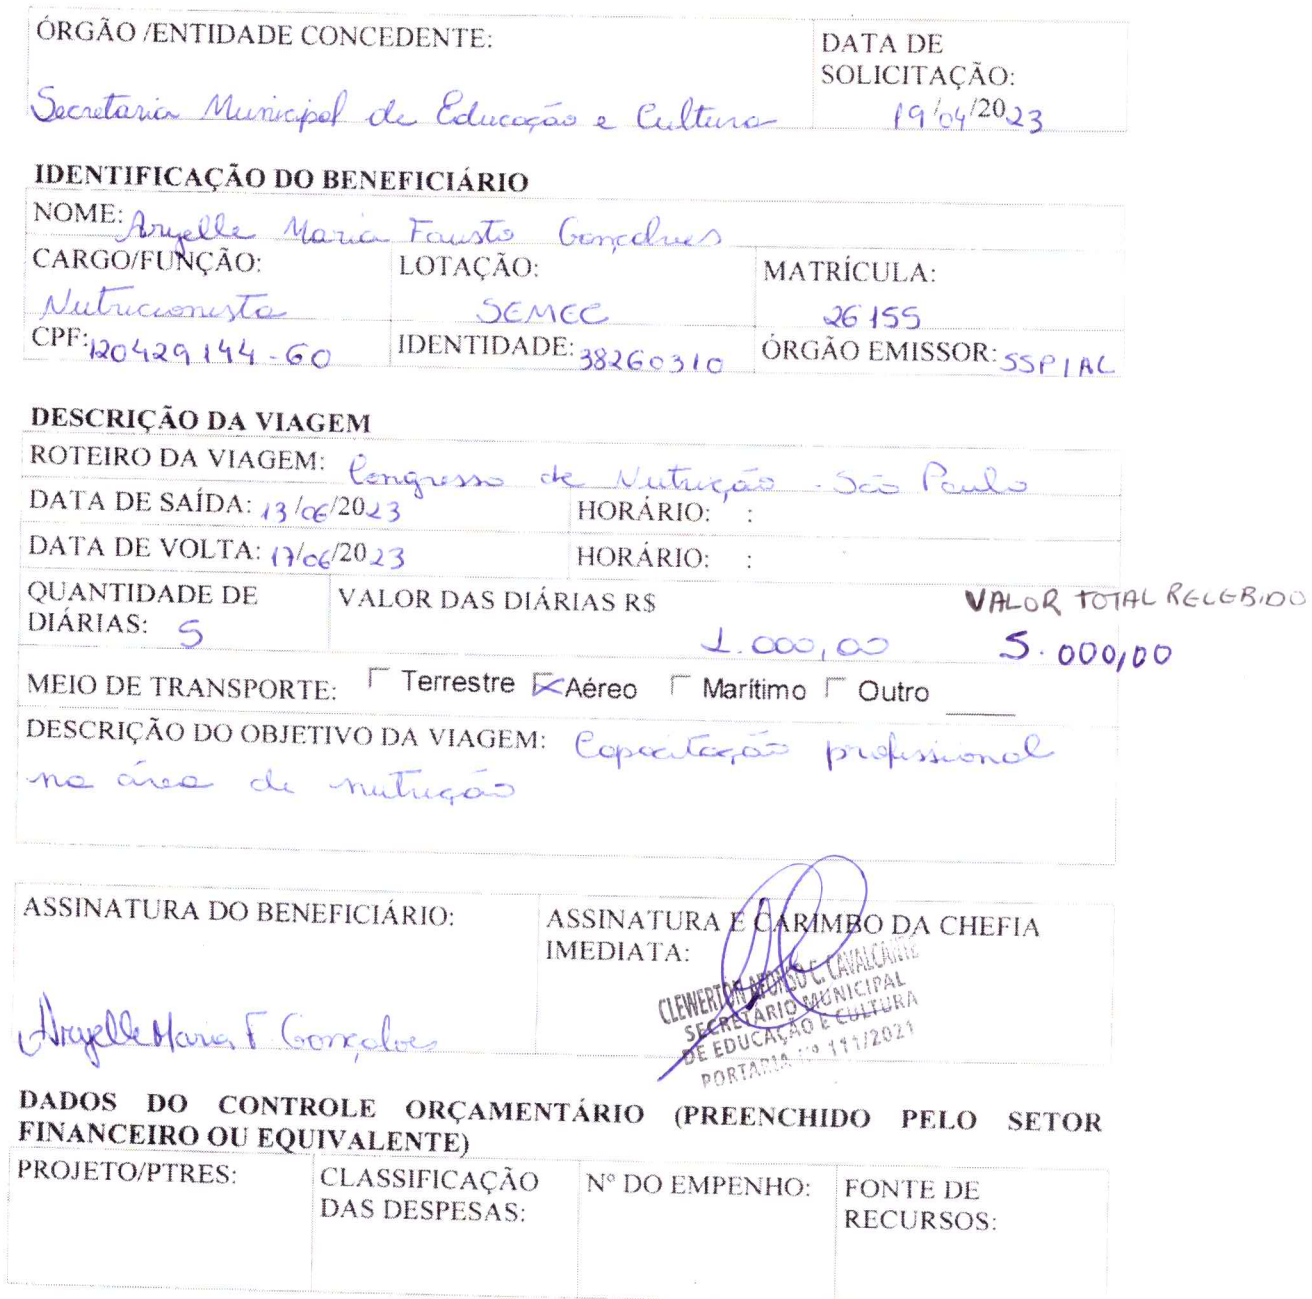 ÓRGÃO /ENTIDADE CONCEDENTE:
Secretaria Municipal de Educação e Cultura
DATA DE
SOLICITAÇÃO:
19/04/2023
IDENTIFICAÇÃO DO BENEFICIÁRIO
NOME: Aryelle Maria Fausto Gonçalves
CARGO/FUNÇÃO: LOTAÇÃO: MATRÍCULA:
Nutricionista SEMEC 26155
CPF: 120429144-60 IDENTIDADE: 38260310 ÓRGÃO EMISSOR: SSP/AL
DESCRIÇÃO DA VIAGEM
ROTEIRO DA VIAGEM: Congresso de Nutrição - São Paulo
DATA DE SAÍDA: 13/06/2023 HORÁRIO: :
DATA DE VOLTA: 17/06/2023 HORÁRIO: :
QUANTIDADE DE
DIÁRIAS: 5
VALOR DAS DIÁRIAS R$
1.000,00
VALOR TOTAL RECEBIDO
5.000,00
MEIO DE TRANSPORTE: Terrestre Aéreo Marítimo Outro ____
DESCRIÇÃO DO OBJETIVO DA VIAGEM: Capacitação profissional
na área de nutrição
ASSINATURA DO BENEFICIÁRIO:
Aryelle Maria F. Gonçalves
ASSINATURA E CARIMBO DA CHEFIA
IMEDIATA:
CLEWERTON AFONSO C. CAVALCANTE
SECRETÁRIO MUNICIPAL
DE EDUCAÇÃO E CULTURA
PORTARIA Nº 111/2021
DADOS DO CONTROLE ORÇAMENTÁRIO (PREENCHIDO PELO SETOR
FINANCEIRO OU EQUIVALENTE)
PROJETO/PTRES:
CLASSIFICAÇÃO
DAS DESPESAS:
Nº DO EMPENHO:
FONTE DE
RECURSOS: